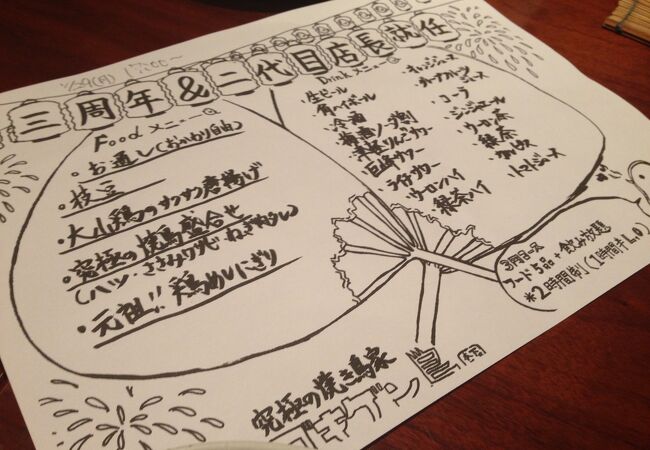 (月) 17:00~
三周年&二代目店長就任
Food メニュー
・お通し(おかわり自由)
・枝豆
・大山鶏のサンサン唐揚げ
・究極の焼鳥盛合せ
(ハツ・ささみわさび・ねぎま)
・元祖!!鶏めしにぎり
Drink メニュー
・生ビール
・角ハイボール
・冷酒
・梅酒ソーダ割
・青森りんごサワー
・巨峰サワー
・ライチサワー
・ウーロンハイ
・緑茶ハイ
・オレンジジュース
・グレープフルーツジュース
・コーラ
・ジンジャエール
・ウーロン茶
・緑茶
・カルピス
・トマトジュース
フード5品+飲み放題
*2時間制(1時間半L.O)
究極の焼き鳥家
ゴキゲン鳥